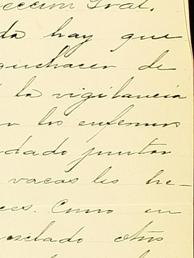 ección Gral.
da hay que
quehacer de
la vigilancia
los enfermos
dado puntos
vacas les he
ces. Como en
mezclado otro